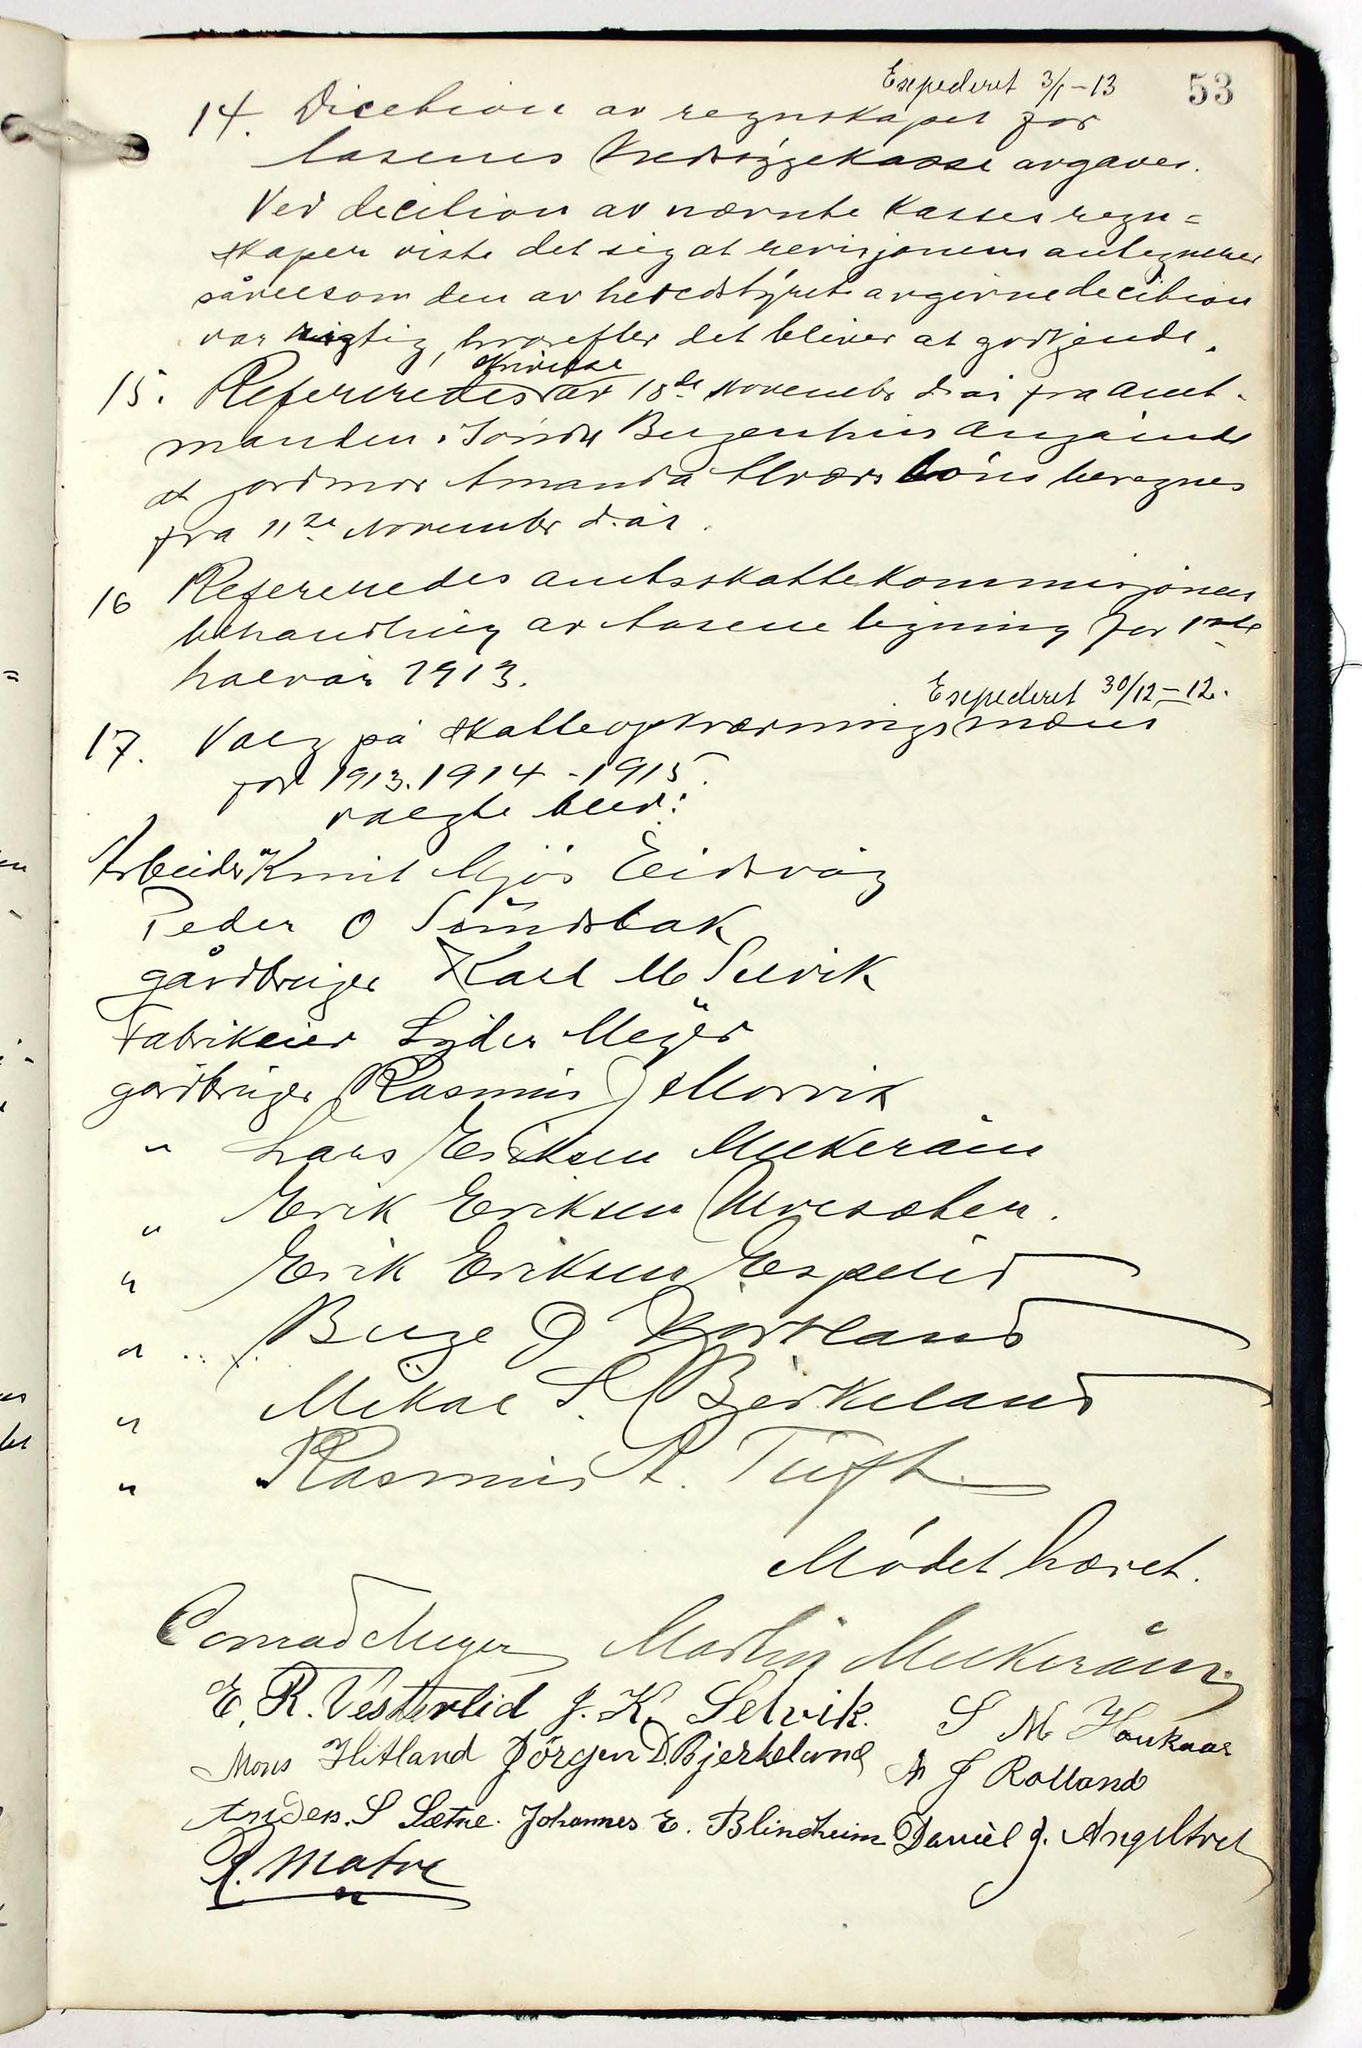 Expederet 3/1-13
53
14. Dicetion av regnskapet for
Aasenes Kredsygekasse avgaves.
Ved decition av nævnte kasses regn=
skaper viste det sig at revisjonens antegnelser
såvelsom den av heredstyret avgivne decition
var rigtig, hvorefter det bliver at godkjende.
15. Refereredes skrivelse av 18de November d. år fra amt-
manden i Söndre Bergenhus angående
at jordmor Amanda löns beregnes
fra 11te November d. år.
16 Refereredes amtsskattekommisjonens
behandling av Aasene ligning for 1ste
halvår 1913.
Expederet 30/12-12.
17. Valg på skatteopkrævningsmæns
for 1913. 1914 - 1915.
valgte blev:
Arbeider Knut Mjös Eidsvåg
Peder O Sundsbak
gårdbruger Karl M Selvik
Fabrikeier Lyder Meÿer
gardbruger Rasmus J Morvik
" Lars Eriksen Mukeråen
" Erik Eriksen Myresæter.
" Erik Eriksen Espelid
" Birge O Hjortland
" Mikal S. Birkeland
" Rasmus A. Tuft
Mödet hævet.
Conrad Meyer Martin Mukeråen
E. R. Vesterlid J. K. Selvik. S M Haukaas
Mons Hitland Jörgen D Bjerkeland A J Rolland
Anders. S Sætre. Johannes E. Blindheim Daniel J. Angeltvet
R. Matre